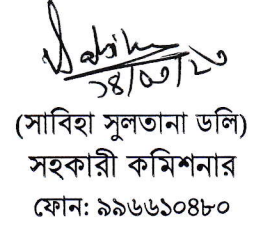 Sabiha
(সাবিহা সুলতানা ডলি)
সহকারী কমিশনার
ফোন: ৯৯৬৬১০৪৮০